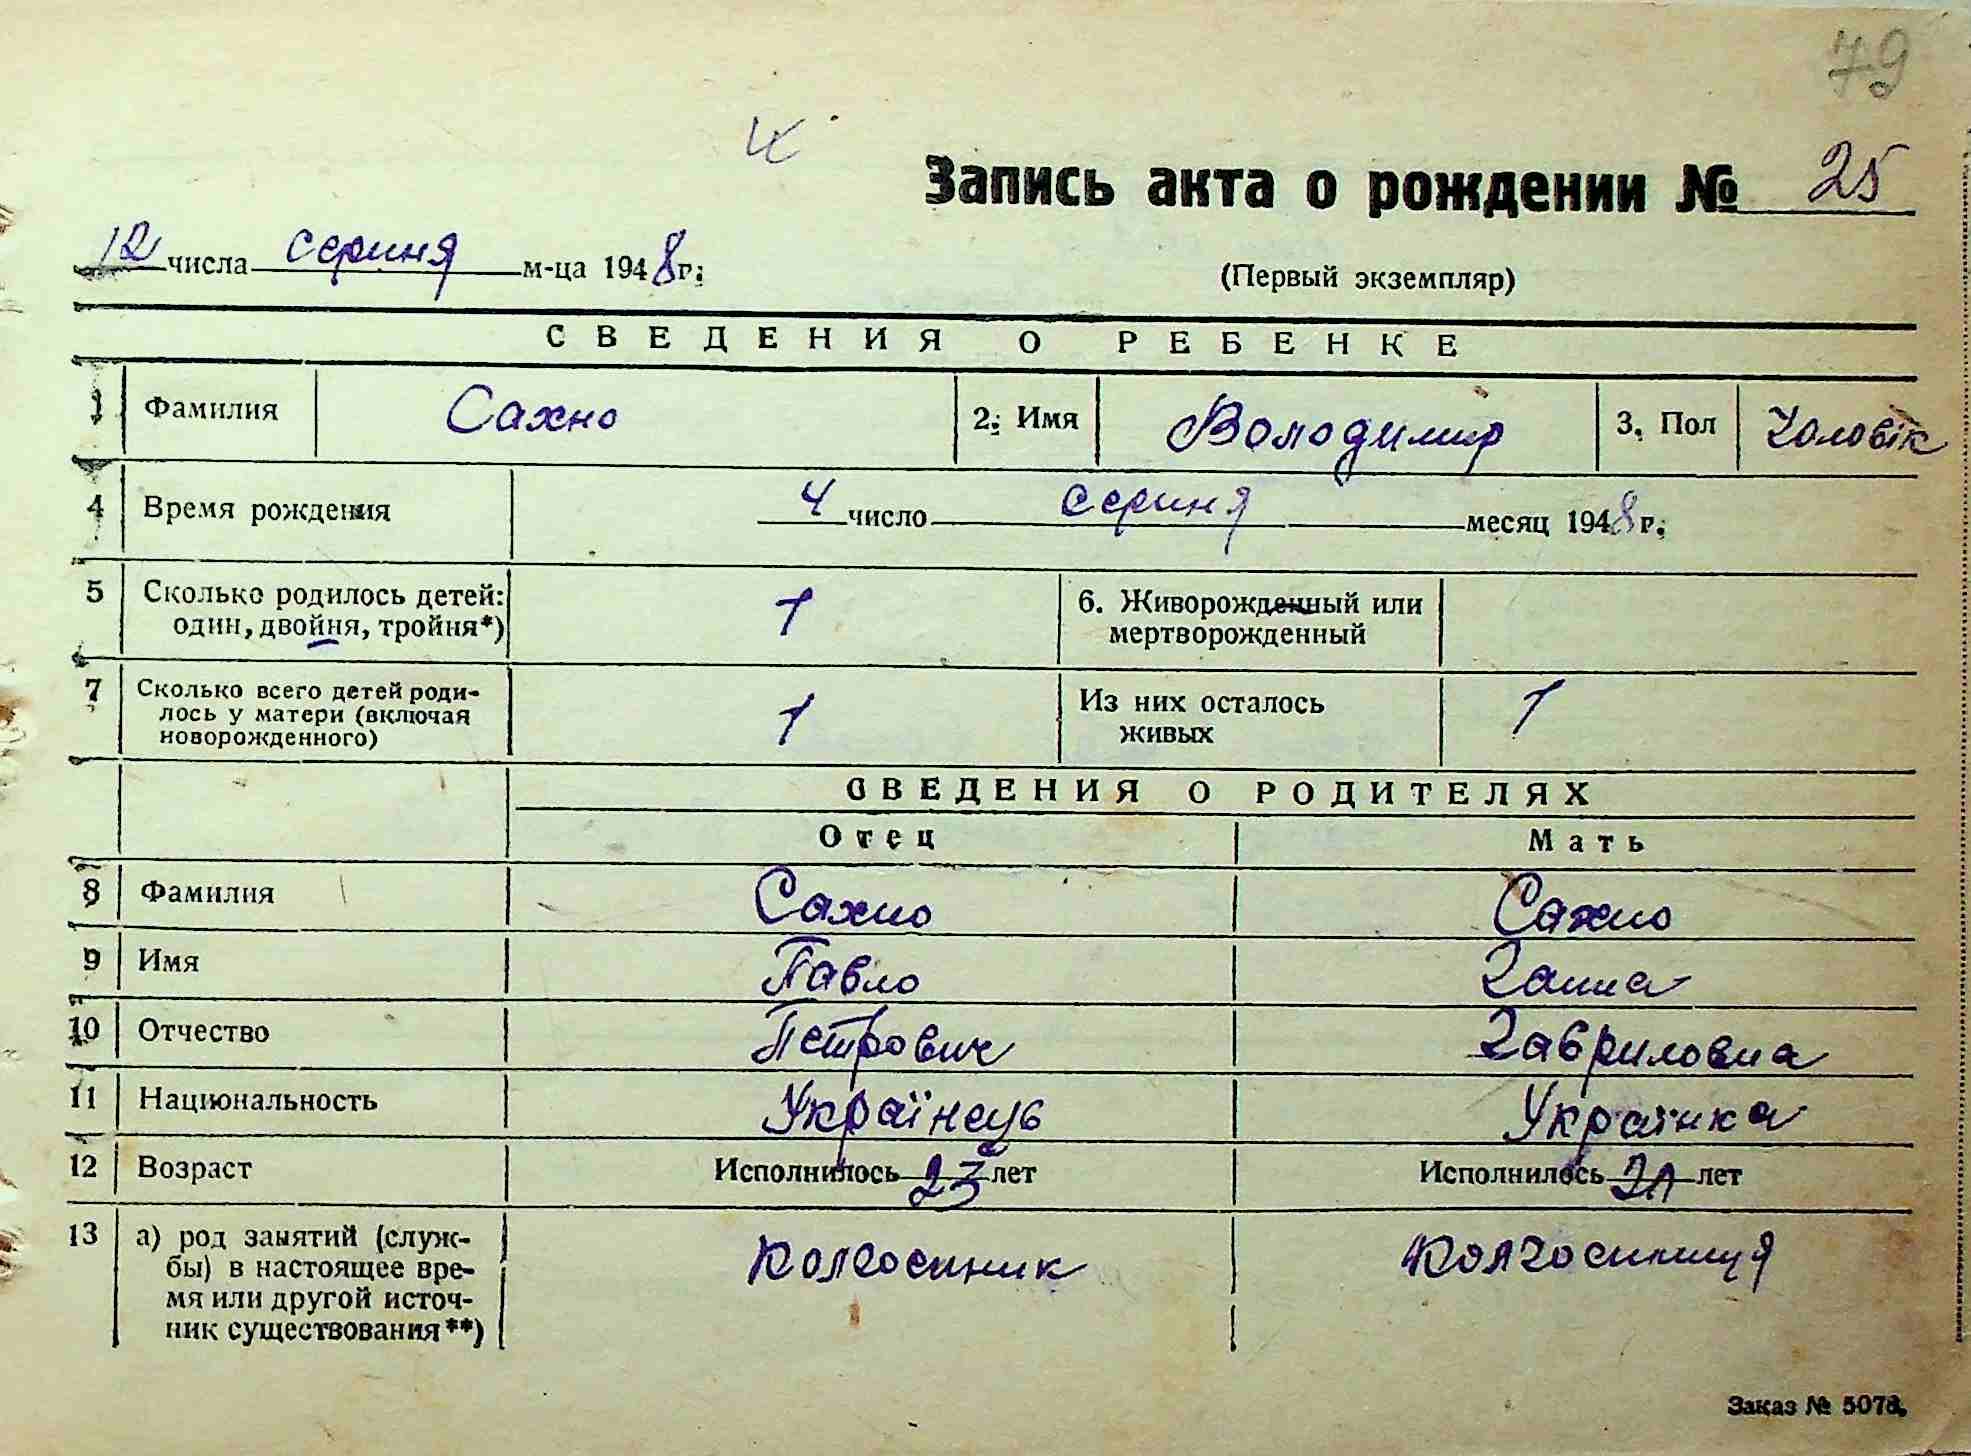 79
Запись акта о рождении № 25
12 числа серпня м-ца 1948 г.
(Первый экземпляр)
СВЕДЕНИЯ О РЕБЕНКЕ
1 Фамилия Сахно 2. Имя Володимир 3. Пол Чоловік
4 Время рождения 4 число серпня месяц 1948 г.
5 Сколько родилось детей: 1 6. Живорожденный или
один, двойня, тройня*) мертворожденный
7 Сколько всего детей роди- 1 Из них осталось 1
лось у матери (включая живых
новорожденного)
СВЕДЕНИЯ О РОДИТЕЛЯХ
Отец Мать
8 Фамилия Сахно Сахно
9 Имя Павло Ганна
10 Отчество Петрович Гавриловна
11 Национальность Українець Українка
12 Возраст Исполнилось 23 лет Исполнилось лет
13 а) род занятий (служ- Колгоспник Колгоспниця
бы) в настоящее вре-
мя или другой источ-
ник существования**)
Заказ № 5078.